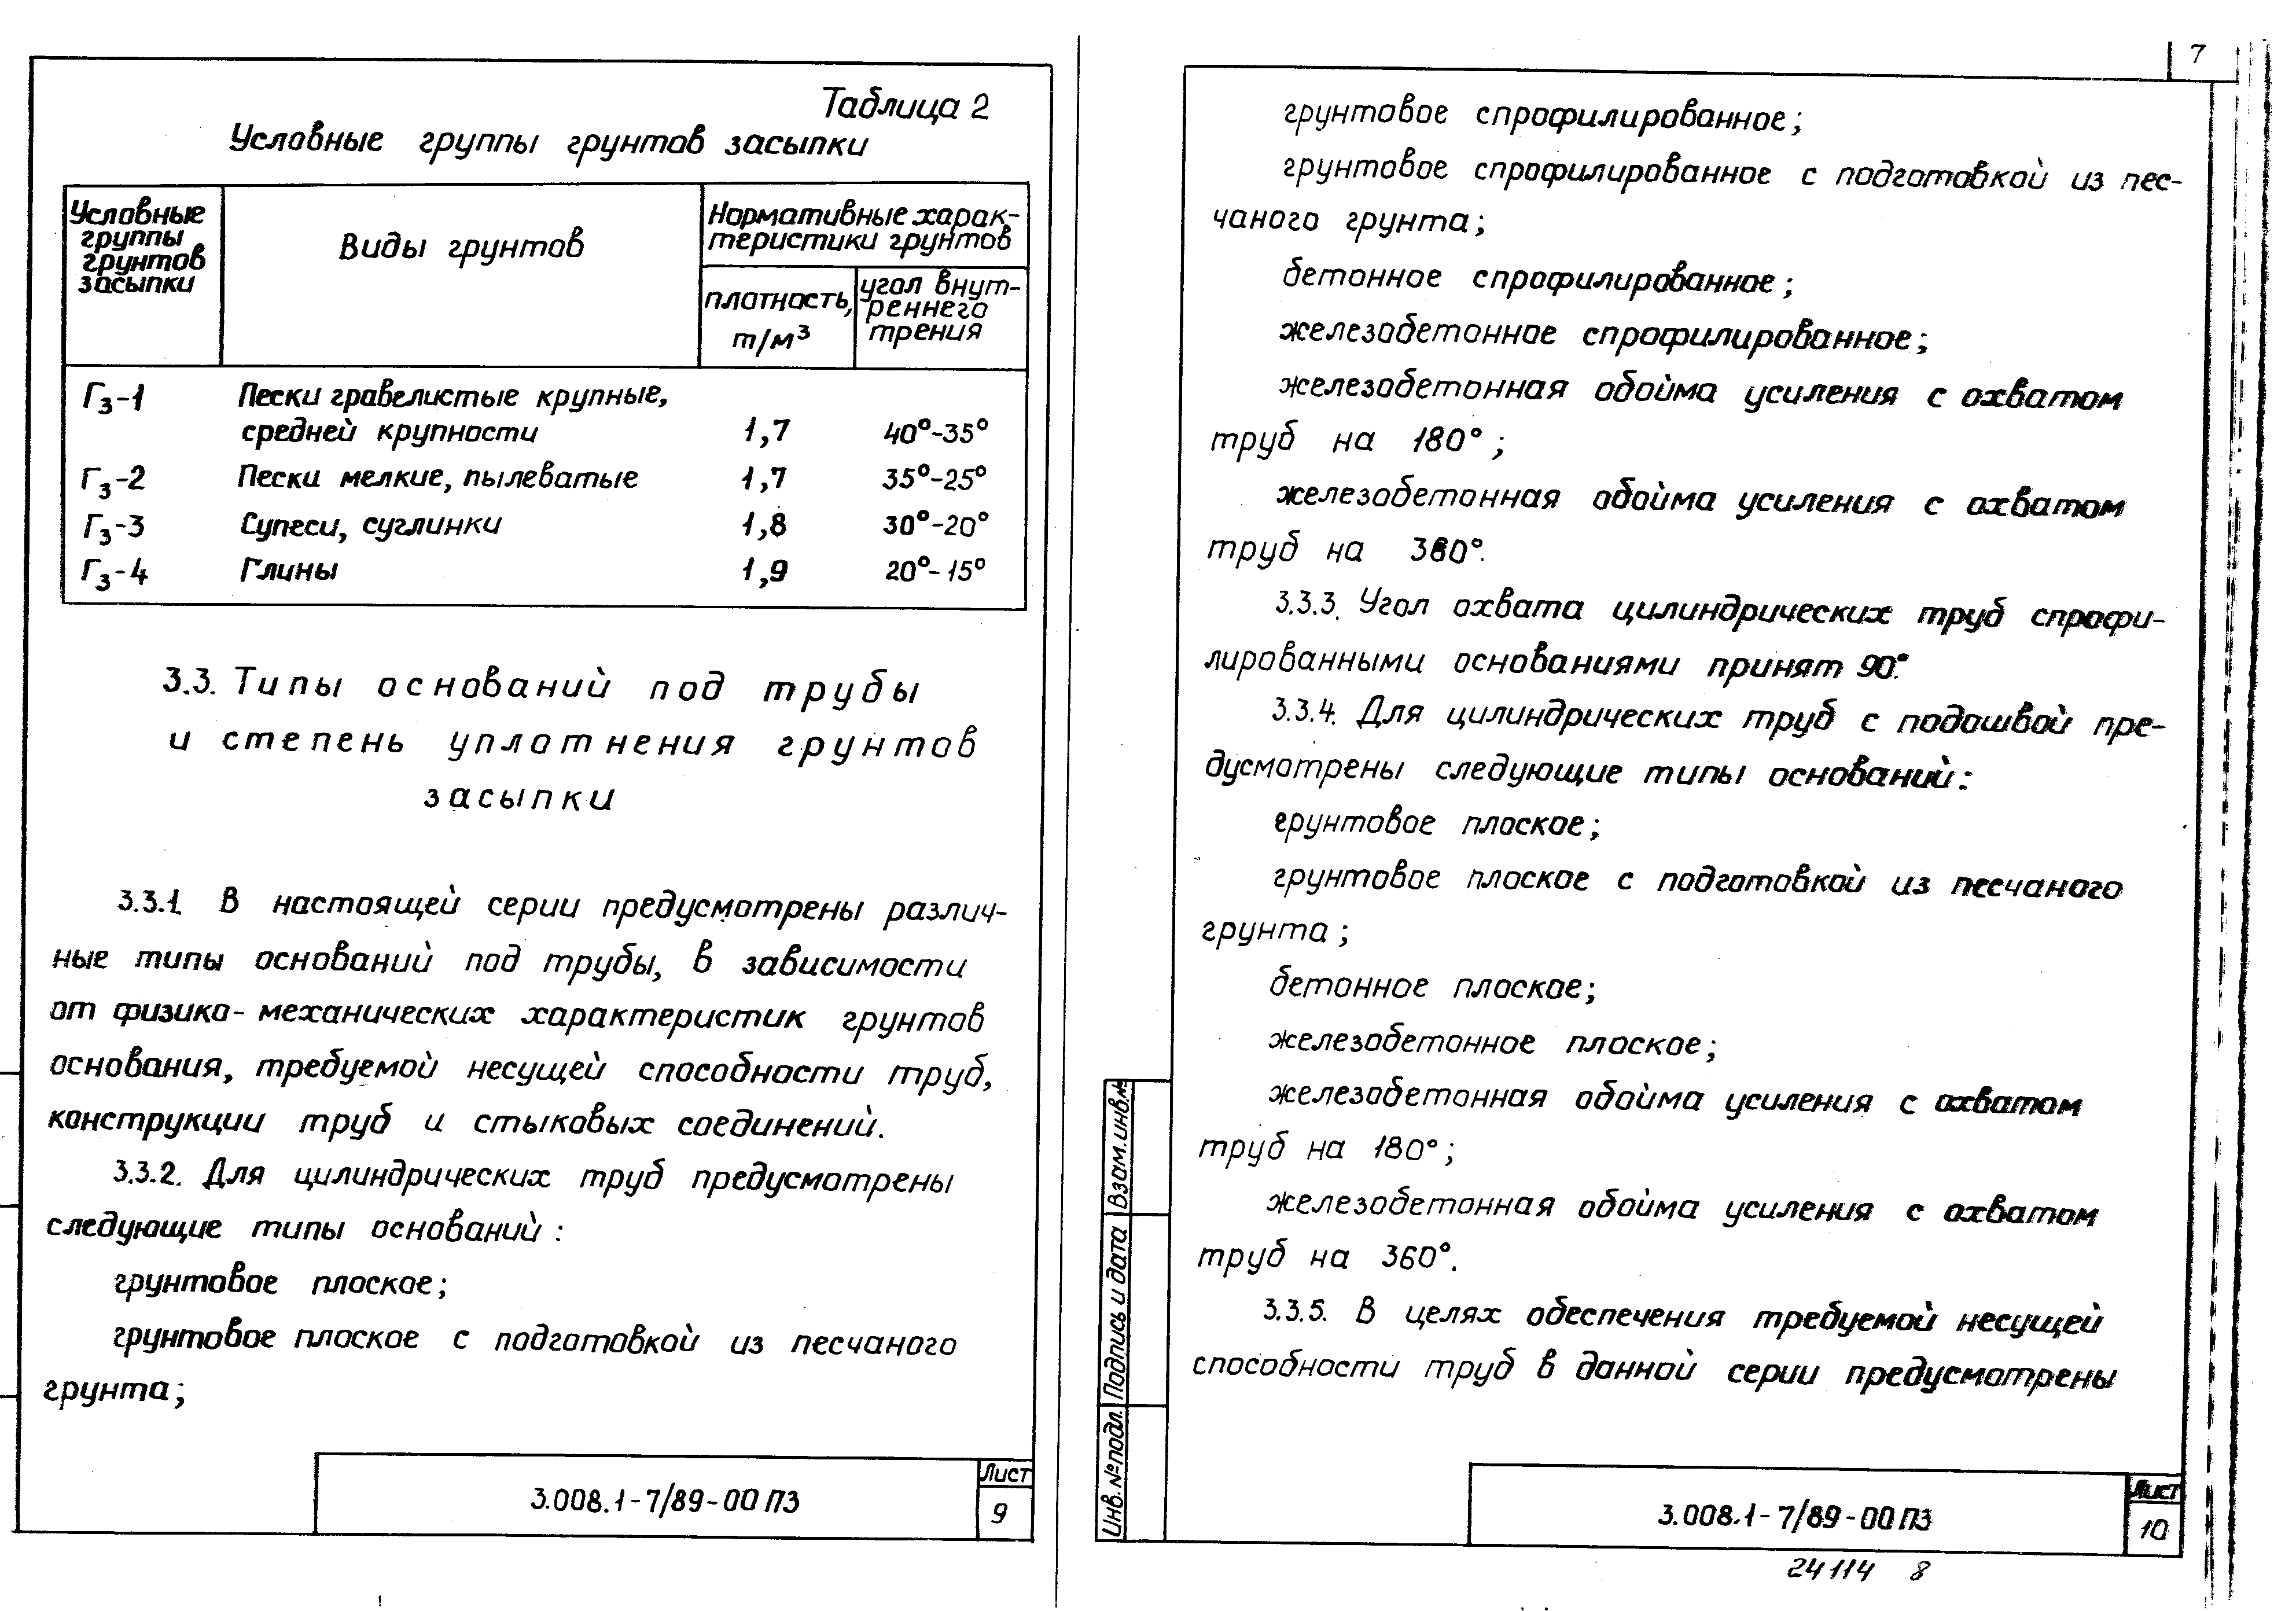 Таблица 2
Условные группы грунтов засыпки
Условные
группы
грунтов
засыпки
Виды грунтов
Нормативные харак-
теристики грунтов
плотность,
т/м³
угол внут-
реннего
трения
Гз-1 Пески гравелистые крупные,
средней крупности 1,7 40°-35°
Гз-2 Пески мелкие, пылеватые 1,7 35°-25°
Гз-3 Супеси, суглинки 1,8 30°-20°
Гз-4 Глины 1,9 20°-15°
3.3. Типы оснований под трубы
и степень уплотнения грунтов
засыпки
3.3.1. В настоящей серии предусмотрены различ-
ные типы оснований под трубы, в зависимости
от физико-механических характеристик грунтов
основания, требуемой несущей способности труб,
конструкции труб и стыковых соединений.
3.3.2. Для цилиндрических труб предусмотрены
следующие типы оснований:
грунтовое плоское;
грунтовое плоское с подготовкой из песчаного
грунта;
3.008.1-7/89-00 ПЗ
Лист
9
7
грунтовое спрофилированное;
грунтовое спрофилированное с подготовкой из пес-
чаного грунта;
бетонное спрофилированное;
железобетонное спрофилированное;
железобетонная обойма усиления с охватом
труб на 180°;
железобетонная обойма усиления с охватом
труб на 360°.
3.3.3. Угол охвата цилиндрических труб спрофи-
лированными основаниями принят 90°.
3.3.4. Для цилиндрических труб с подошвой пре-
дусмотрены следующие типы оснований:
грунтовое плоское;
грунтовое плоское с подготовкой из песчаного
грунта;
бетонное плоское;
железобетонное плоское;
железобетонная обойма усиления с охватом
труб на 180°;
железобетонная обойма усиления с охватом
труб на 360°.
3.3.5. В целях обеспечения требуемой несущей
способности труб в данной серии предусмотрены
Взам. инв.№
Подпись и дата
Инв. № подл.
3.008.1-7/89-00 ПЗ
Лист
10
24114 8